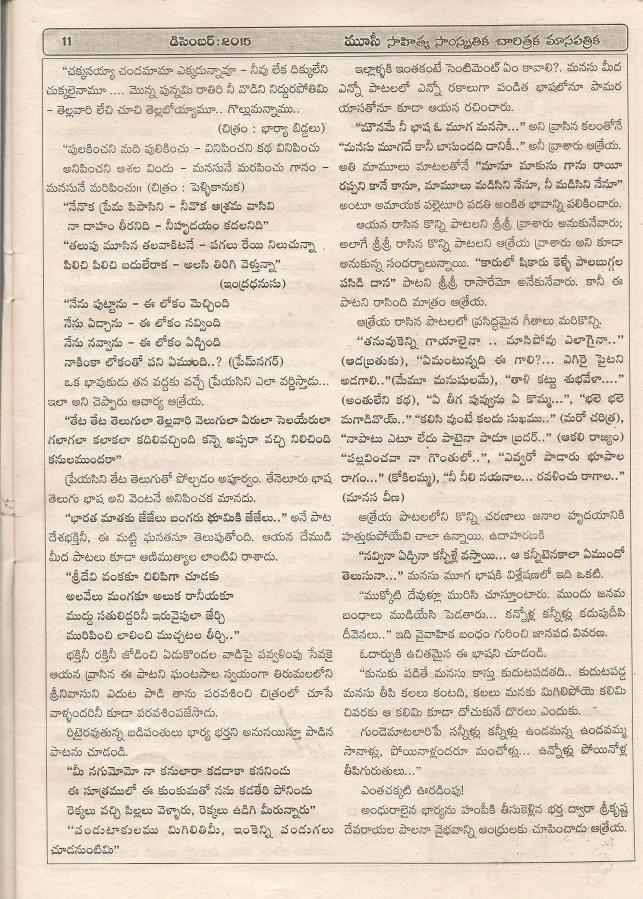 11
డిసెంబర్:2015
మూసీ సాహిత్య సాంస్కృతిక చారిత్రక మాసపత్రిక
“చక్కనయ్యా చందమామా ఎక్కడున్నావూ – నీవు లేక దిక్కులేని
చుక్కలైనామూ .... మొన్న పున్నమి రాతిరి నీ వొడిని నిద్దురపోతిమి
– తెల్లవారి లేచి చూచి తెల్లబోయ్యామూ.. గొల్లుమన్నాము..
(చిత్రం : భార్యా బిడ్డలు)
“పులకించని మది పులికించు – వినిపించని కథ వినిపించు
అనిపించని ఆశల విందు – మనసునే మరపించు గానం –
మనసునే మరిపించు॥ (చిత్రం : పెళ్ళికానుక)
“నేనొక ప్రేమ పిపాసిని – నీవొక ఆశ్రమ వాసివి
నా దాహం తీరనిది – నీహృదయం కదలనిది”
“తలుపు మూసిన తలవాకిటనే – పగలు రేయి నిలుచున్నా
పిలిచి పిలిచి బదులేరాక – అలసి తిరిగి వెళ్తున్నా”
(ఇంద్రధనుసు)
“నేను పుట్టాను – ఈ లోకం మెచ్చింది
నేను ఏడ్చాను – ఈ లోకం నవ్వింది
నేను నవ్వాను – ఈ లోకం ఏడ్చింది
నాకింకా లోకంతో పని ఏముంది..? (ప్రేమ్‌నగర్)
ఒక భావుకుడు తన వద్దకు వచ్చే ప్రేయసిని ఎలా వర్ణిస్తాడు...
ఇలా అని చెప్పారు ఆచార్య ఆత్రేయ.
“తేట తేట తెలుగులా తెల్లవారి వెలుగులా ఏరులా సెలయేరులా
గలాగలా కలాకలా కదిలివచ్చింది కన్నె అప్సరా వచ్చి నిలిచింది
కనులముందరా”
ప్రేయసిని తేట తెలుగుతో పోల్చడం అపూర్వం. తేనెలూరు భాష
తెలుగు భాష అని వెంటనే అనిపించక మానదు.
“భారత మాతకు జేజేలు బంగరు భూమికి జేజేలు..” అనే పాట
దేశభక్తినీ, ఈ మట్టి ఘనతనూ తెలుపుతోంది. ఆయన దేముడి
మీద పాటలు కూడా ఆణిముత్యాల లాంటివి రాశాడు.
“శ్రీదేవి వంకకూ చిలిపిగా చూడకు
అలవేలు మంగకూ అలుక రానీయకూ
ముద్దు సతులిద్దరినీ ఇరువైపులా జేర్చి
మురిపించి లాలించి ముచ్చటల తీర్చి..”
భక్తినీ రక్తినీ జోడించి ఏడుకొండల వాడిపై పవ్వళింపు సేవకై
ఆయన వ్రాసిన ఈ పాటని ఘంటసాల స్వయంగా తిరుమలలోని
శ్రీనివాసుని ఎదుట పాడి తాను పరవశించి చిత్రంలో చూసే
వాళ్ళందరినీ కూడా పరవశింపజేసాడు.
రిటైరవుతున్న బడిపంతులు భార్య భర్తని అనునయిస్తూ పాడిన
పాటను చూడండి.
“మీ నగుమోమో నా కనులారా కడదాకా కననిందు
ఈ సూత్రములో ఈ కుంకుమతో నను కడతేరి పోనిందు
రెక్కలు వచ్చి పిల్లలు వెళ్ళారు, రెక్కలు ఉడిగి మీరున్నారు”
‘‘పండుటాకులము మిగిలితిమీ, ఇంకెన్ని పండుగలు
చూడనుంటిమి”
ఇల్లాళ్ళకి ఇంతకంటే సెంటిమెంట్ ఏం కావాలి?. మనసు మీద
ఎన్నో పాటలలో ఎన్నో రకాలుగా పండిత భాషలోనూ పామర
యాసతోనూ కూడా ఆయన రచించారు.
“మౌనమే నీ భాష ఓ మూగ మనసా...” అని వ్రాసిన కలంతోనే
“మనసు మూగదే కానీ బాసుందది దానికీ..” అనీ వ్రాశారు ఆత్రేయ.
అతి మామూలు మాటలతోనే “మానూ మాకును గాను రాయీ
రప్పని కానే కానూ, మామూలు మడిసిని నేనూ, నీ మడిసిని నేనూ”
అంటూ అమాయక పల్లెటూరి పడతి అంకిత భావాన్ని పలికించారు.
ఆయన రాసిన కొన్ని పాటలని శ్రీశ్రీ వ్రాశారు అనుకునేవారు;
అలాగే శ్రీశ్రీ రాసిన కొన్ని పాటలని ఆత్రేయ వ్రాశారు అని కూడా
అనుకున్న సందర్భాలున్నాయి. “కారులో షికారు కెళ్ళే పాలబుగ్గల
పసిడి దాన” పాటని శ్రీశ్రీ రాసారేమో అనేకునేవారు. కానీ ఈ
పాటని రాసింది మాత్రం ఆత్రేయ.
ఆత్రేయ రాసిన పాటలలో ప్రసిద్ధమైన గీతాలు మరికొన్ని.
“తనువుకెన్ని గాయాలైనా .. మాసిపోవు ఎలాగైనా..”
(ఆడ(బతుకు), “ఏమంటున్నది ఈ గాలి?... ఎగిరె పైటని
అడగాలి..”(మేమూ మనుషులమే), “తాళి కట్టు శుభవేళా....”
(అంతులేని కథ), “ఏ తీగ పువ్వును ఏ కొమ్మ...”, “భలె భలె
మగాడివోయ్..” “కలిసి వుంటే కలదు సుఖము..” (మరో చరిత్ర),
“నాపాటు ఎటూ లేదు పాటైనా పాడూ బ్రదర్..” (ఆకలి రాజ్యం)
“పల్లవించవా నా గొంతులో..”, “ఎవ్వరో పాడారు భూపాల
రాగం...” (కోకిలమ్మ), “నీ నీలి నయనాల... రవళించు రాగాల..”
(మానస వీణ)
ఆత్రేయ పాటలలోని కొన్ని చరణాలు జనాల హృదయానికి
హత్తుకుపోయేవి చాలా ఉన్నాయి. ఉదాహరణకి
“నవ్వినా ఏడ్చినా కన్నీళ్లే వస్తాయి... ఆ కన్నీటెనకాల ఏముందో
తెలుసునా...” మనసు మూగ భాషకి విశ్లేషణలో ఇది ఒకటి.
“ముక్కోటి దేవుళ్లూ మురిసి చూస్తూంటారు. ముందు జనమ
బంధాలు ముడియేసి పెడతారు... కన్నోళ్ల కన్నీళ్లు కడుపుదీపి
దీవెనలు..” ఇది వైవాహిక బంధం గురించి జానపద వివరణ.
ఓదార్పుకి ఉచితమైన ఈ భాషని చూడండి.
“కునుకు పడితే మనసు కాస్త కుదుటపడతది.. కుదుటపడ్డ
మనసు తీపి కలలు కంటది, కలలు మనకు మిగిలిపోయె కలిమి
చివరకు ఆ కలిమి కూడా దోచుకునే దొరలు ఎందుకు.
గుండెమాటలారిపే నన్నీళ్లు కన్నీళ్లు ఉండమన్న ఉండవమ్మ
సానాళ్లు, పోయినాళ్లందరూ మంచోళ్లు... ఉన్నోళ్లు పోయినోళ్ల
తీపిగురుతులు...”
ఎంతచక్కటి ఊరడింపు!
అంధురాలైన భార్యను హంపీకి తీసుకెళ్లిన భర్త ద్వారా శ్రీకృష్ణ
దేవరాయల పాలనా వైభవాన్ని ఆంధ్రులకు చూపించాడు ఆత్రేయ.